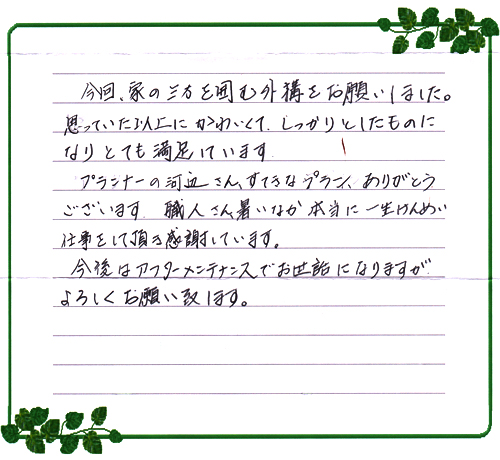 今回、家の三方を囲む外構をお願いしました。
思っていた以上にかわいくて、しっかりとしたものに
なりとても満足しています
プランナーの河並さん、すてきなプラン、ありがとう
ございます 職人さん暑いなか本当に一生けんめい
仕事をして頂き感謝しています。
今後はアフターメンテナンスでお世話になりますが
よろしくお願い致します。